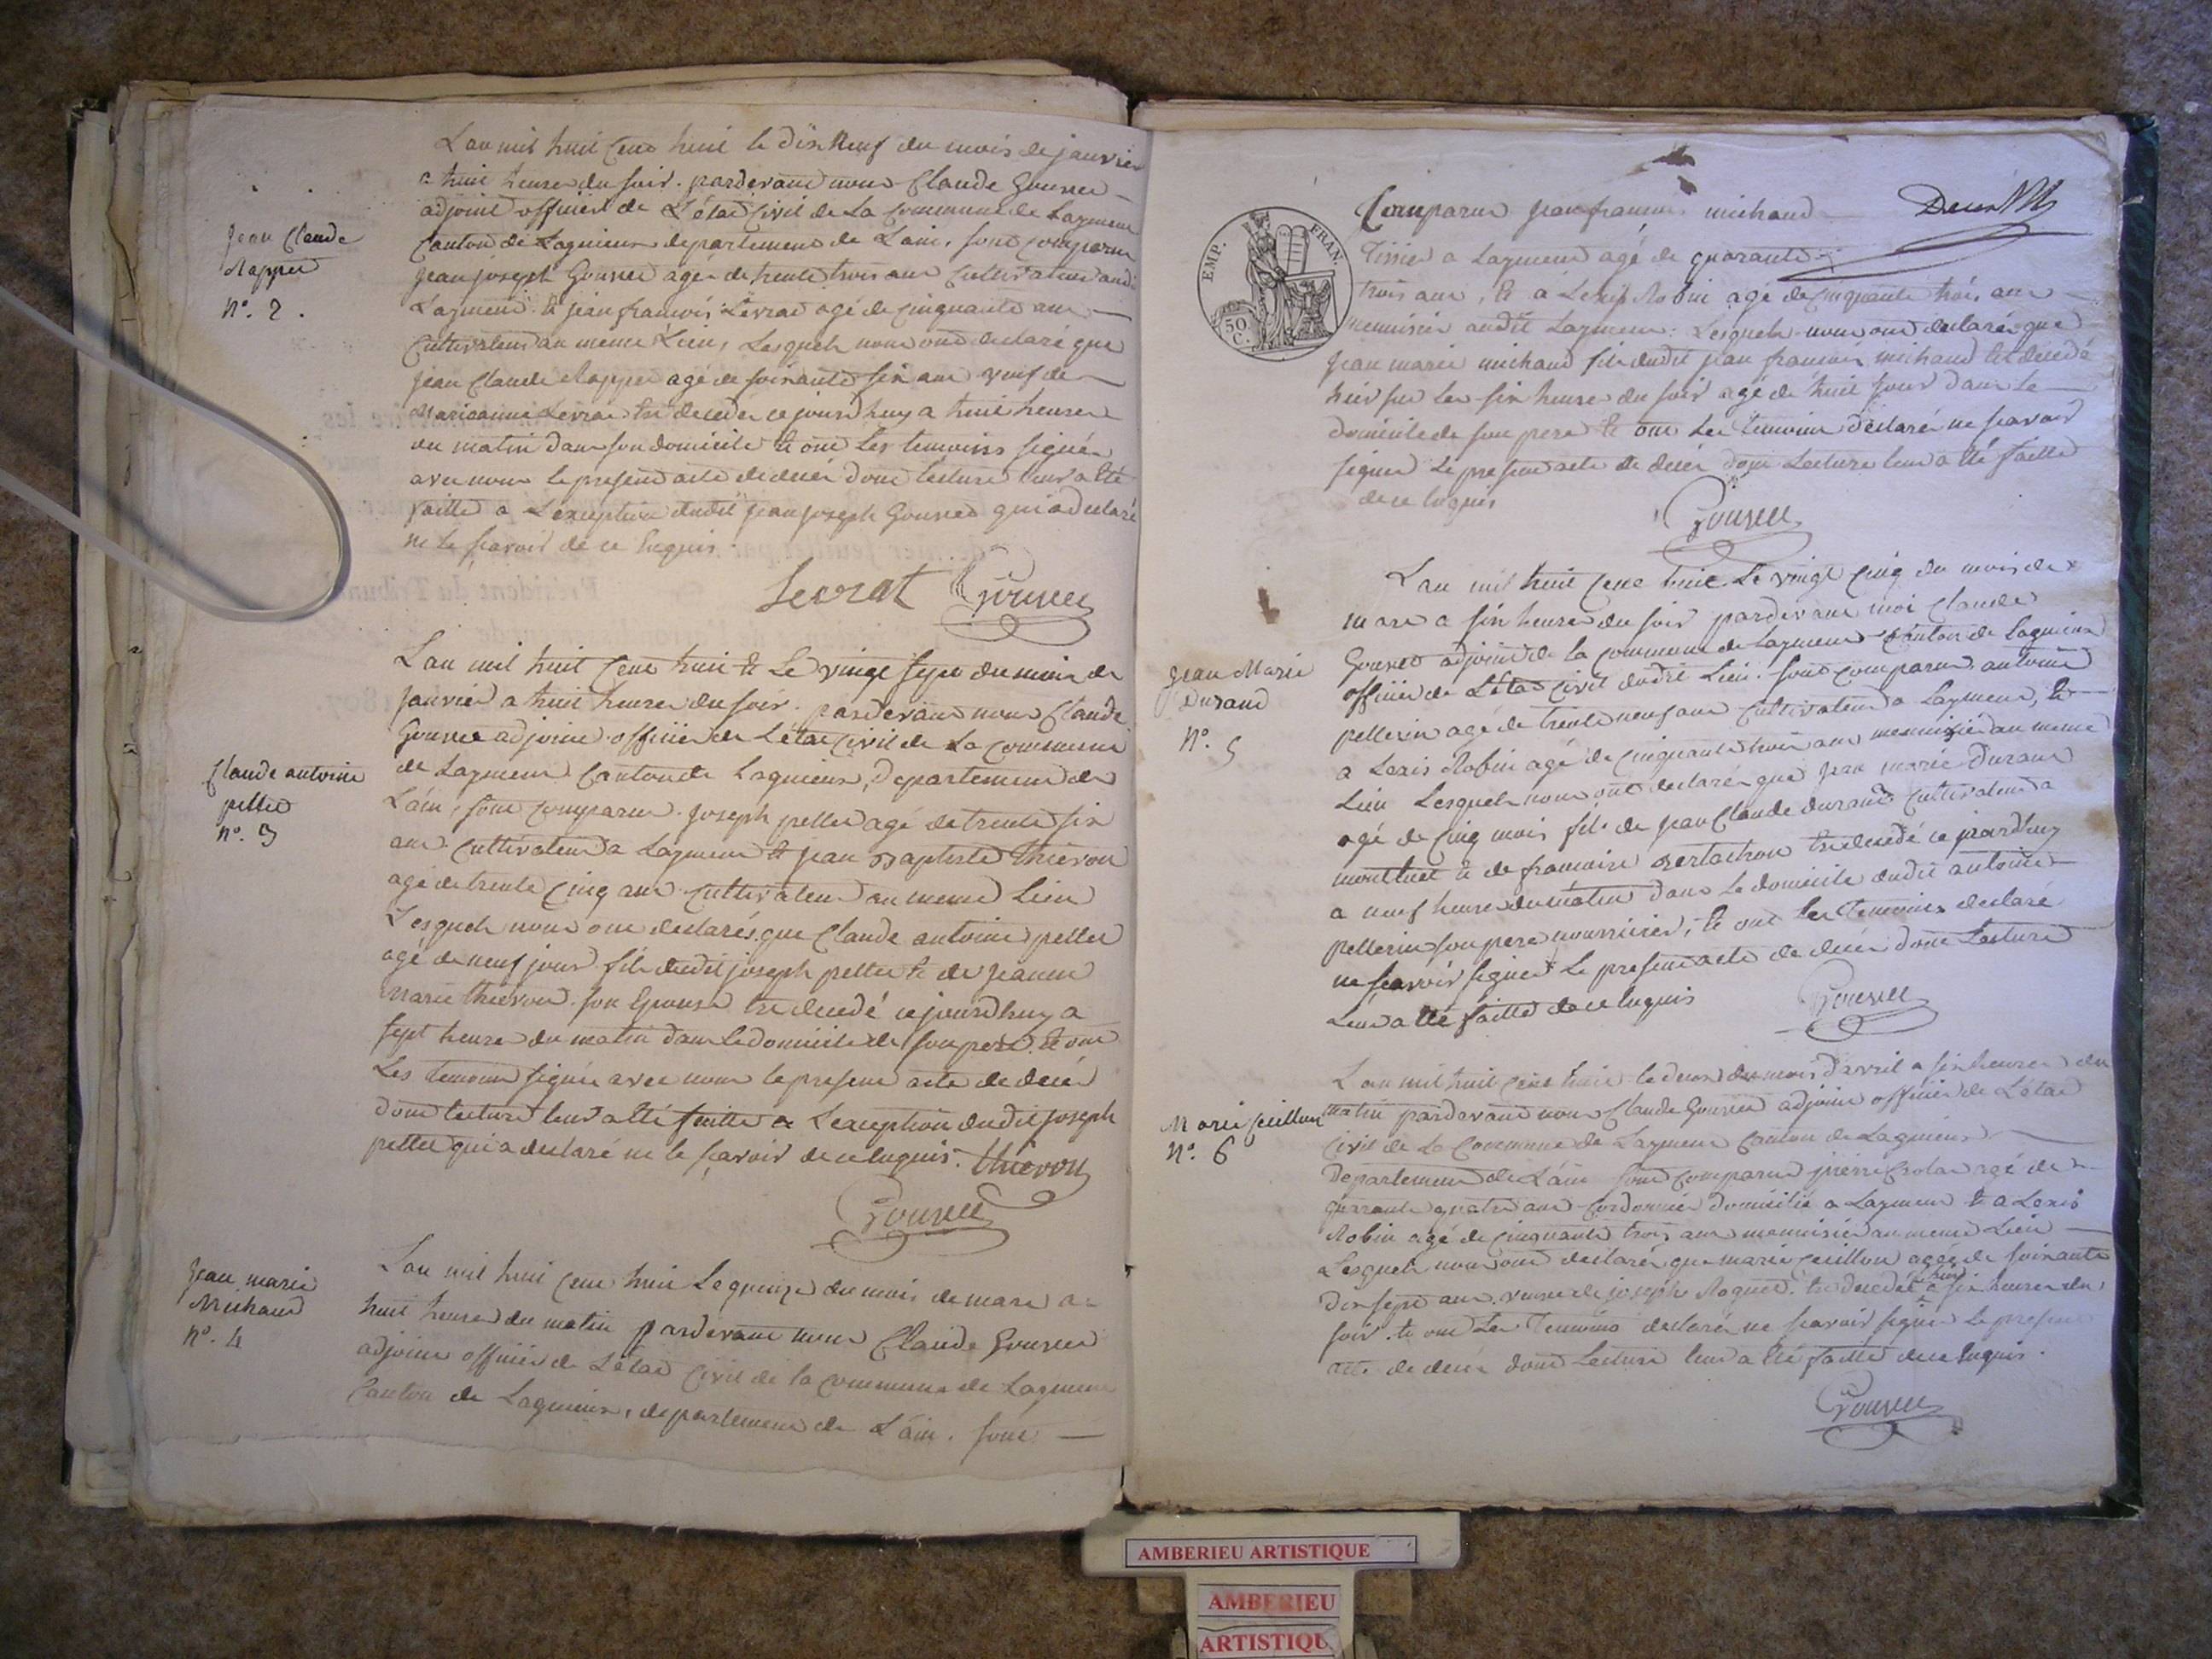 L'an mil huit cent huit le dix neuf du mois de janvier
a huit heures du soir. pardevant nous Claude Gourset
adjoint officier de L'état Civil de La Commune de Laymens
Canton de Lagnieux departement de L'ain, sont Comparus
jean joseph Gourset agé de trente trois ans Cultivateur audit
Laymens et jean francois Levrat agé de Cinquante ans
Cultivateur au meme Lieu, Lesquels nous ont declaré que
jean Claude agé de soixante six ans veuf de
Marieanne Levrat est decedé ce jourd'huy a huit heures
du matin dans son domicile et ont Les temoins signés
avec nous le present acte de decès dont lecture leur a été
faitte a L'exception dudit jean joseph Gourset qui a declaré
ne le scavoir de ce enquis
Jean Claude
N°. 2.
Levrat Gourset
L'an mil huit Cent huit et Le vingt sept du mois de
janvier a huit heures du soir. pardevant nous Claude
Gourset adjoint officier de L'état Civil de La Commune
de Laymens Canton de Lagnieux, Departement de
L'ain, sont comparus joseph pellet agé de trente six
ans Cultivateur a Laymens et jean Baptiste thiévon
agé de trente Cinq ans Cultivateur au meme Lieu
Lesquels nous ont declarés que Claude antoine pellet
agé de neuf jours fils dudit joseph pellet et de jeanne
Marie thiévon son Epouse est decedé ce jourd'huy a
sept heures du matin dans Le domicile de son pere et ont
Les temoins signés avec nous le present acte de decès
dont lecture leur a été faitte a L'exception dudit joseph
pellet qui a declaré ne le scavoir de ce enquis. thiévon
Claude antoine
pellet
N°. 3
Gourset
L'an mil huit Cent huit Le quinze du mois de mars a
huit heures du matin pardevant nous Claude Gourset
adjoint officier de L'état Civil de la Commune de Laymens
Canton de Lagnieux, departement de L'ain. sont
Jean marie
Michaud
N°. 4
EMP. FRAN.
50 C.
Comparus jean francois michaud
Tissier a Laymens agé de quarante
trois ans, et aLexis Robin agé de Cinquante trois ans
menuisier audit Laymens. Lesquels nous ont declarés que
jean marie michaud fils dudit jean francois michaud est decedé
hier sur Les six heures du soir agé de huit jours dans Le
domicile de son pere et ont Les temoins declaré ne scavoir
signer Le present acte de decès dont Lecture leur a été faitte
de ce enquis
Gourset
L'an mil huit Cent huit Le vingt Cinq du mois de
mars a six heures du soir pardevant moi Claude
Gourset adjoint de la Commune de Laymens Canton de Lagnieux
officier de L'état Civil dudit Lieu. sont comparus antoine
pellerin agé de trente neuf ans Cultivateur a Laymens, et
aLexis Robin agé de Cinquante trois ans menuisier au meme
Lieu Lesquels nous ont declarés que jean marie Durand
agé de Cinq mois fils de jean Claude durand Cultivateur a
montluel et de francoise est decedé ce jourd'huy
a neuf heures du matin dans Le domicile dudit antoine
pellerin son pere nourricier, et ont Les temoins declaré
ne scavoir signer Le present acte de decès dont Lecture
Leur a été faitte de ce enquis
Jean Marie
Durand
N°. 5
Gourset
L'an mil huit Cent huit le deux du mois d'avril a six heures du
matin pardevant nous Claude Gourset adjoint officier de L'état
Civil de La Commune de Laymens Canton de Lagnieux
Departement de L'ain sont comparus pierre agé de
quarante quatre ans Cordonnier domicilié a Laymens et aLexis
Robin agé de Cinquante trois ans menuisier au meme Lieu
Lesquels nous ont declarés que marie agée de soixante
dix sept ans veuve de joseph est decedée hier a six heures du
soir. et ont Les Temoins declaré ne scavoir signer Le present
acte de decès dont Lecture leur a été faitte de ce enquis.
N°. 6
Gourset
AMBERIEU ARTISTIQUE
AMBERIEU
ARTISTIQU